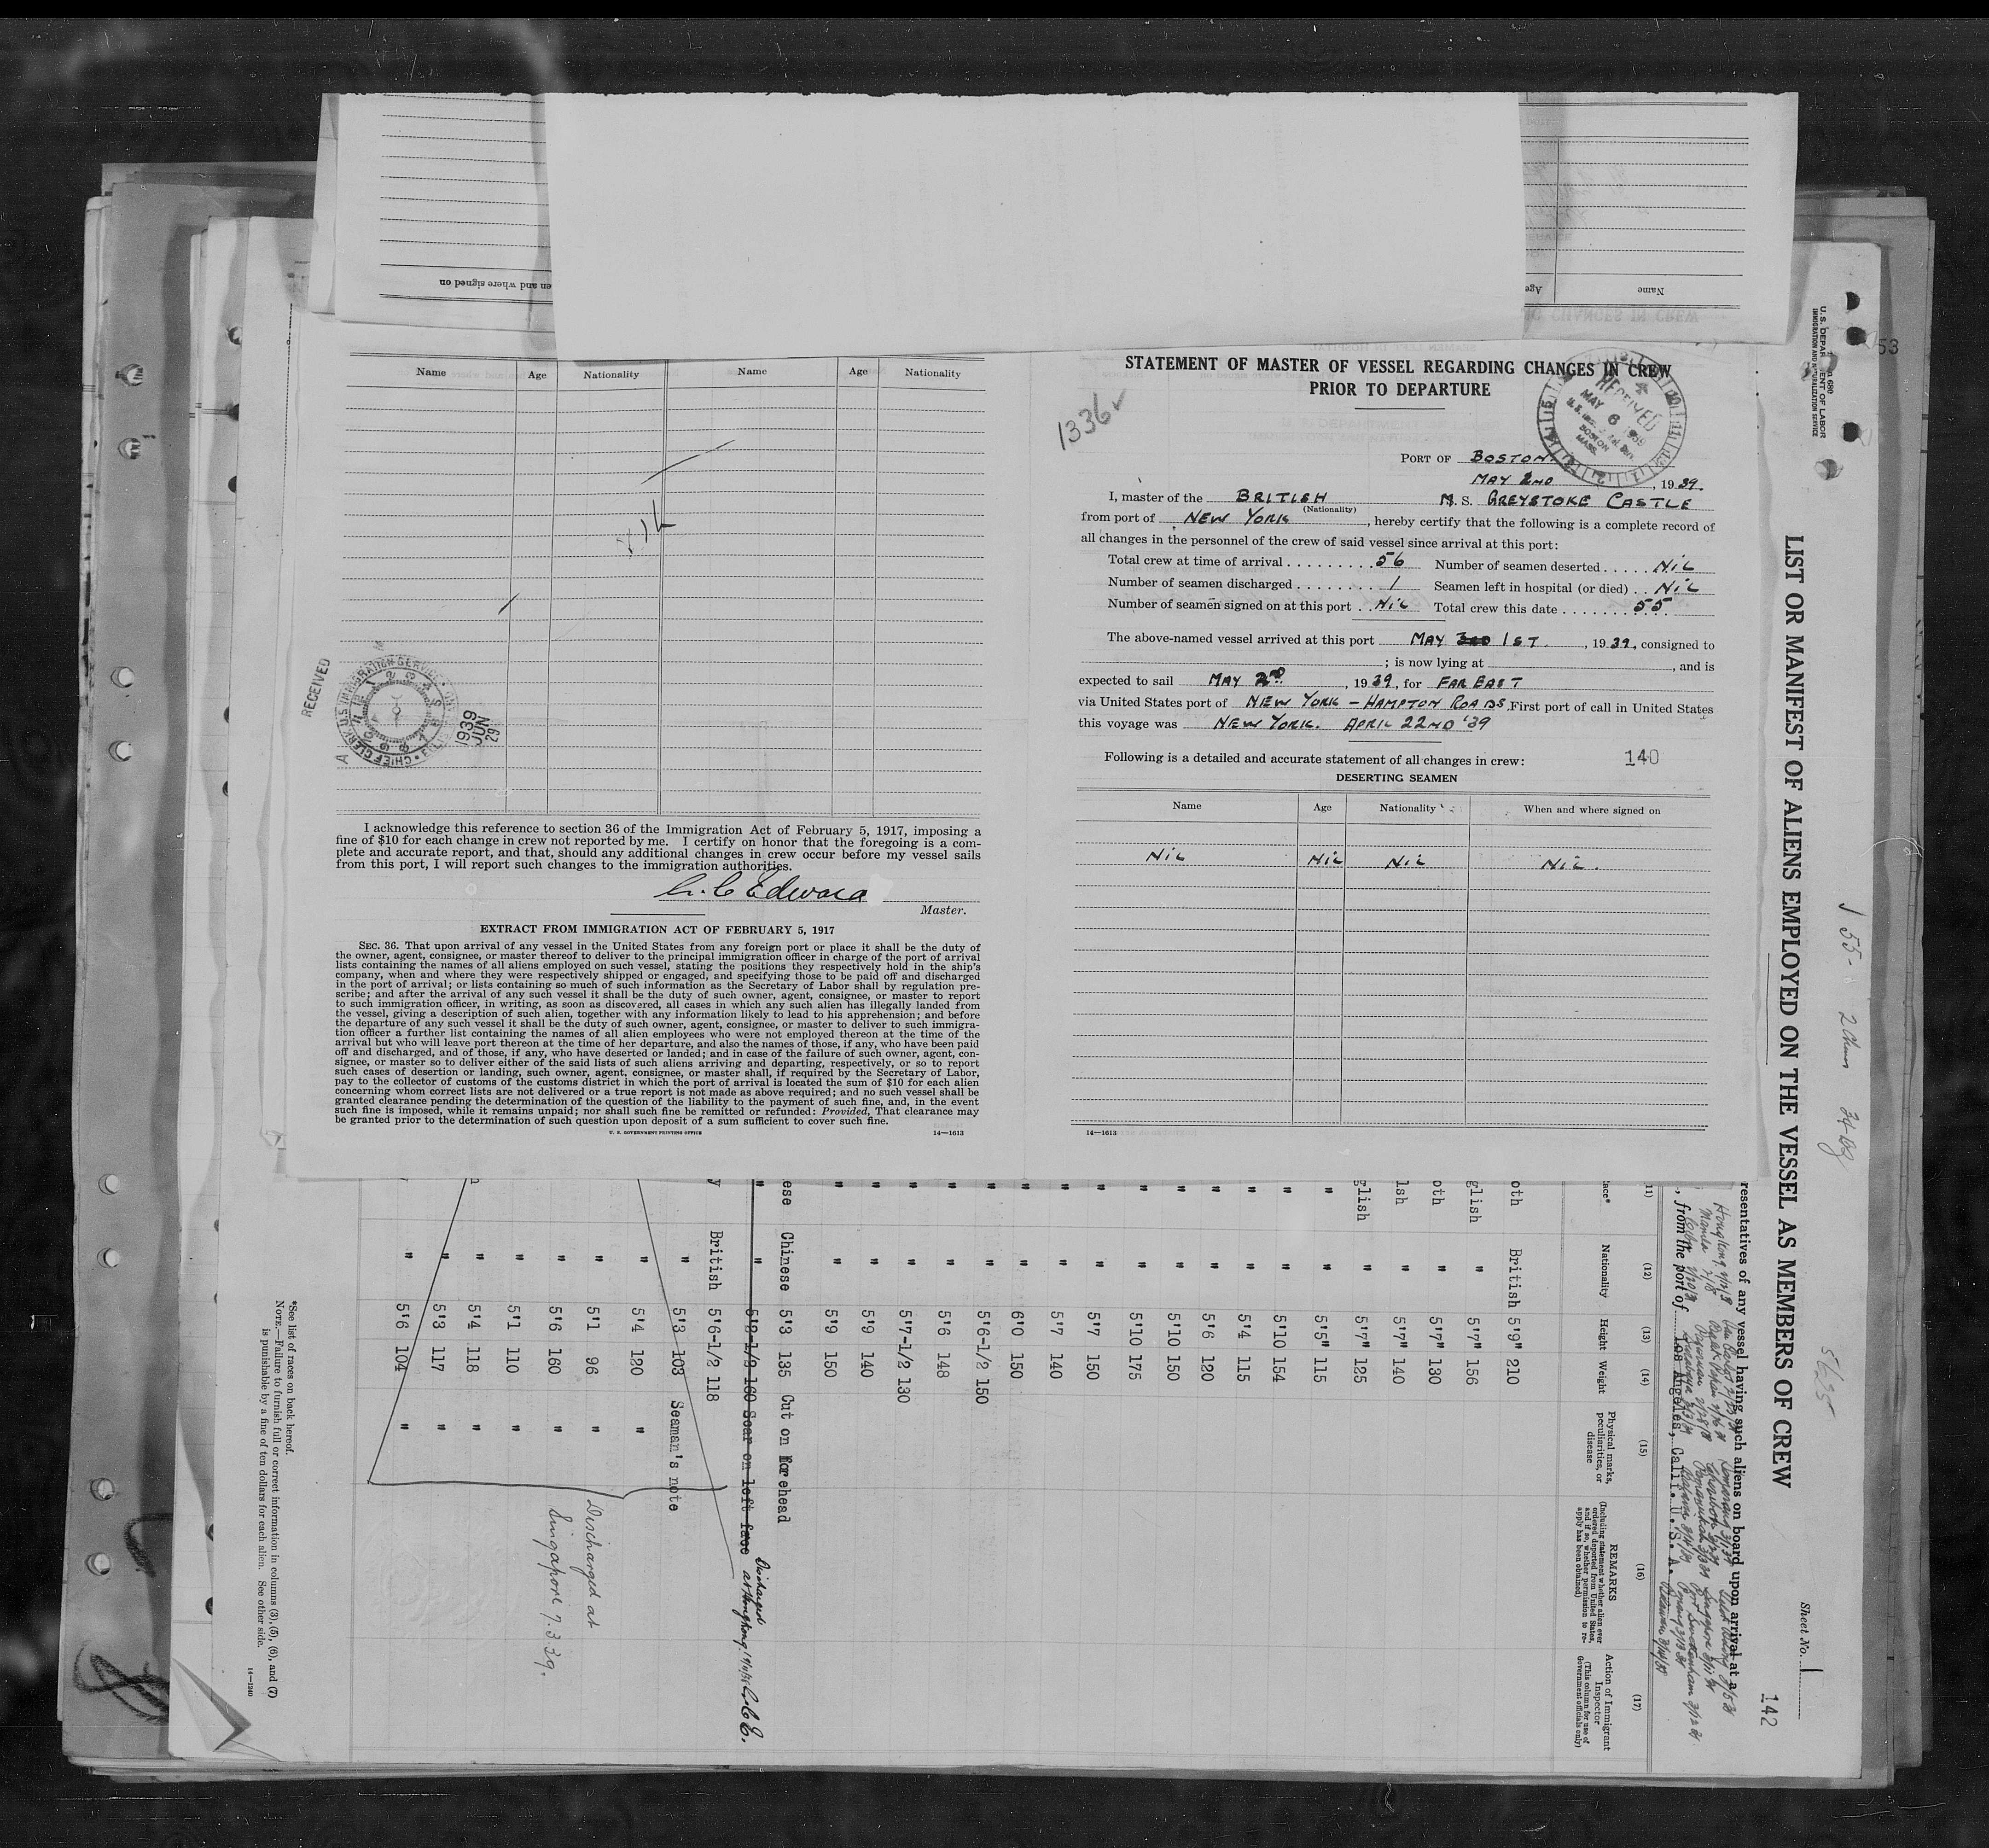 en and where signed on
Age
Name
Name Age Nationality Name Age Nationality
RECEIVED
U.S. IMMIGRATION SERVICE
CHIEF CLERK
1939
JUN
29
I acknowledge this reference to section 36 of the Immigration Act of February 5, 1917, imposing a
fine of $10 for each change in crew not reported by me. I certify on honor that the foregoing is a com-
plete and accurate report, and that, should any additional changes in crew occur before my vessel sails
from this port, I will report such changes to the immigration authorities.
Edward
Master.
EXTRACT FROM IMMIGRATION ACT OF FEBRUARY 5, 1917
SEC. 36. That upon arrival of any vessel in the United States from any foreign port or place it shall be the duty of
the owner, agent, consignee, or master thereof to deliver to the principal immigration officer in charge of the port of arrival
lists containing the names of all aliens employed on such vessel, stating the positions they respectively hold in the ship's
company, when and where they were respectively shipped or engaged, and specifying those to be paid off and discharged
in the port of arrival; or lists containing so much of such information as the Secretary of Labor shall by regulation pre-
scribe; and after the arrival of any such vessel it shall be the duty of such owner, agent, consignee, or master to report
to such immigration officer, in writing, as soon as discovered, all cases in which any such alien has illegally landed from
the vessel, giving a description of such alien, together with any information likely to lead to his apprehension; and before
the departure of any such vessel it shall be the duty of such owner, agent, consignee, or master to deliver to such immigra-
tion officer a further list containing the names of all alien employees who were not employed thereon at the time of the
arrival but who will leave port thereon at the time of her departure, and also the names of those, if any, who have been paid
off and discharged, and of those, if any, who have deserted or landed; and in case of the failure of such owner, agent, con-
signee, or master so to deliver either of the said lists of such aliens arriving and departing, respectively, or so to report
such cases of desertion or landing, such owner, agent, consignee, or master shall, if required by the Secretary of Labor,
pay to the collector of customs of the customs district in which the port of arrival is located the sum of $10 for each alien
concerning whom correct lists are not delivered or a true report is not made as above required; and no such vessel shall be
granted clearance pending the determination of the question of the liability to the payment of such fine, and, in the event
such fine is imposed, while it remains unpaid; nor shall such fine be remitted or refunded: Provided, That clearance may
be granted prior to the determination of such question upon deposit of a sum sufficient to cover such fine.
U. S. GOVERNMENT PRINTING OFFICE 14—1613
STATEMENT OF MASTER OF VESSEL REGARDING CHANGES IN CREW
PRIOR TO DEPARTURE
1336
RECEIVED
MAY 6 1939
BOSTON
MASS.
PORT OF BOSTON.
MAY 2ND, 1939.
I, master of the BRITISH M. S. GREYSTOKE CASTLE
(Nationality)
from port of NEW YORK, hereby certify that the following is a complete record of
all changes in the personnel of the crew of said vessel since arrival at this port:
Total crew at time of arrival . . . . . . . . . 56 Number of seamen deserted . . . . . NIL
Number of seamen discharged . . . . . . . . 1 Seamen left in hospital (or died) . . NIL
Number of seamen signed on at this port . . NIL Total crew this date . . . . . . . 55
The above-named vessel arrived at this port MAY 3RD 1ST., 1939, consigned to
; is now lying at , and is
expected to sail MAY 2ND, 1939, for FAR EAST
via United States port of NEW YORK – HAMPTON ROADS. First port of call in United States
this voyage was NEW YORK. APRIL 22ND '39
Following is a detailed and accurate statement of all changes in crew: 140
DESERTING SEAMEN
Name Age Nationality When and where signed on
NIL NIL NIL NIL.
14—1613
53
U. S. DEPARTMENT OF LABOR
IMMIGRATION AND NATURALIZATION SERVICE
LIST OR MANIFEST OF ALIENS EMPLOYED ON THE VESSEL AS MEMBERS OF CREW
Sheet No. 1
142
55
5625
resentatives of any vessel having such aliens on board upon arrival at a
, from the port of Los Angeles, Calif. U. S. A.
(11) (12) (13) (14) (15) (16) (17)
Nationality Height Weight
Physical marks, peculiarities, or disease
REMARKS
(Including statement whether alien ever ordered deported from United States, and if so, whether permission to re-apply has been obtained)
Action of Immigrant Inspector
(This column for use of Government officials only)
oth British 5'9" 210
glish " 5'7" 156
oth " 5'7" 130
lsh " 5'7" 140
glish " 5'7" 125
" " 5'5" 115
" " 5'10 154
" " 5'4 115
" " 5'6 120
" " 5'10 150
" " 5'10 175
" " 5'7 150
" " 5'7 140
" " 6'0 150
" " 5'6-1/2 150
" " 5'6 148
" " 5'7-1/2 130
" " 5'9 140
" " 5'9 150
ese Chinese 5'3 135 Cut on Forehead
" " 5'8-1/2 160 Scar on left face Discharged at Hongkong
y British 5'6-1/2 118
" 5'3 103 Seaman's note
" 5'4 120 "
" 5'1 96 "
" 5'6 160
" 5'1 110 "
" 5'4 118 "
" 5'3 117 "
" 5'6 104 "
Discharged at
Singapore 7.3.39.
*See list of races on back hereof.
NOTE.—Failure to furnish full or correct information in columns (3), (5), (6), and (7)
is punishable by a fine of ten dollars for each alien. See other side.
14—1240